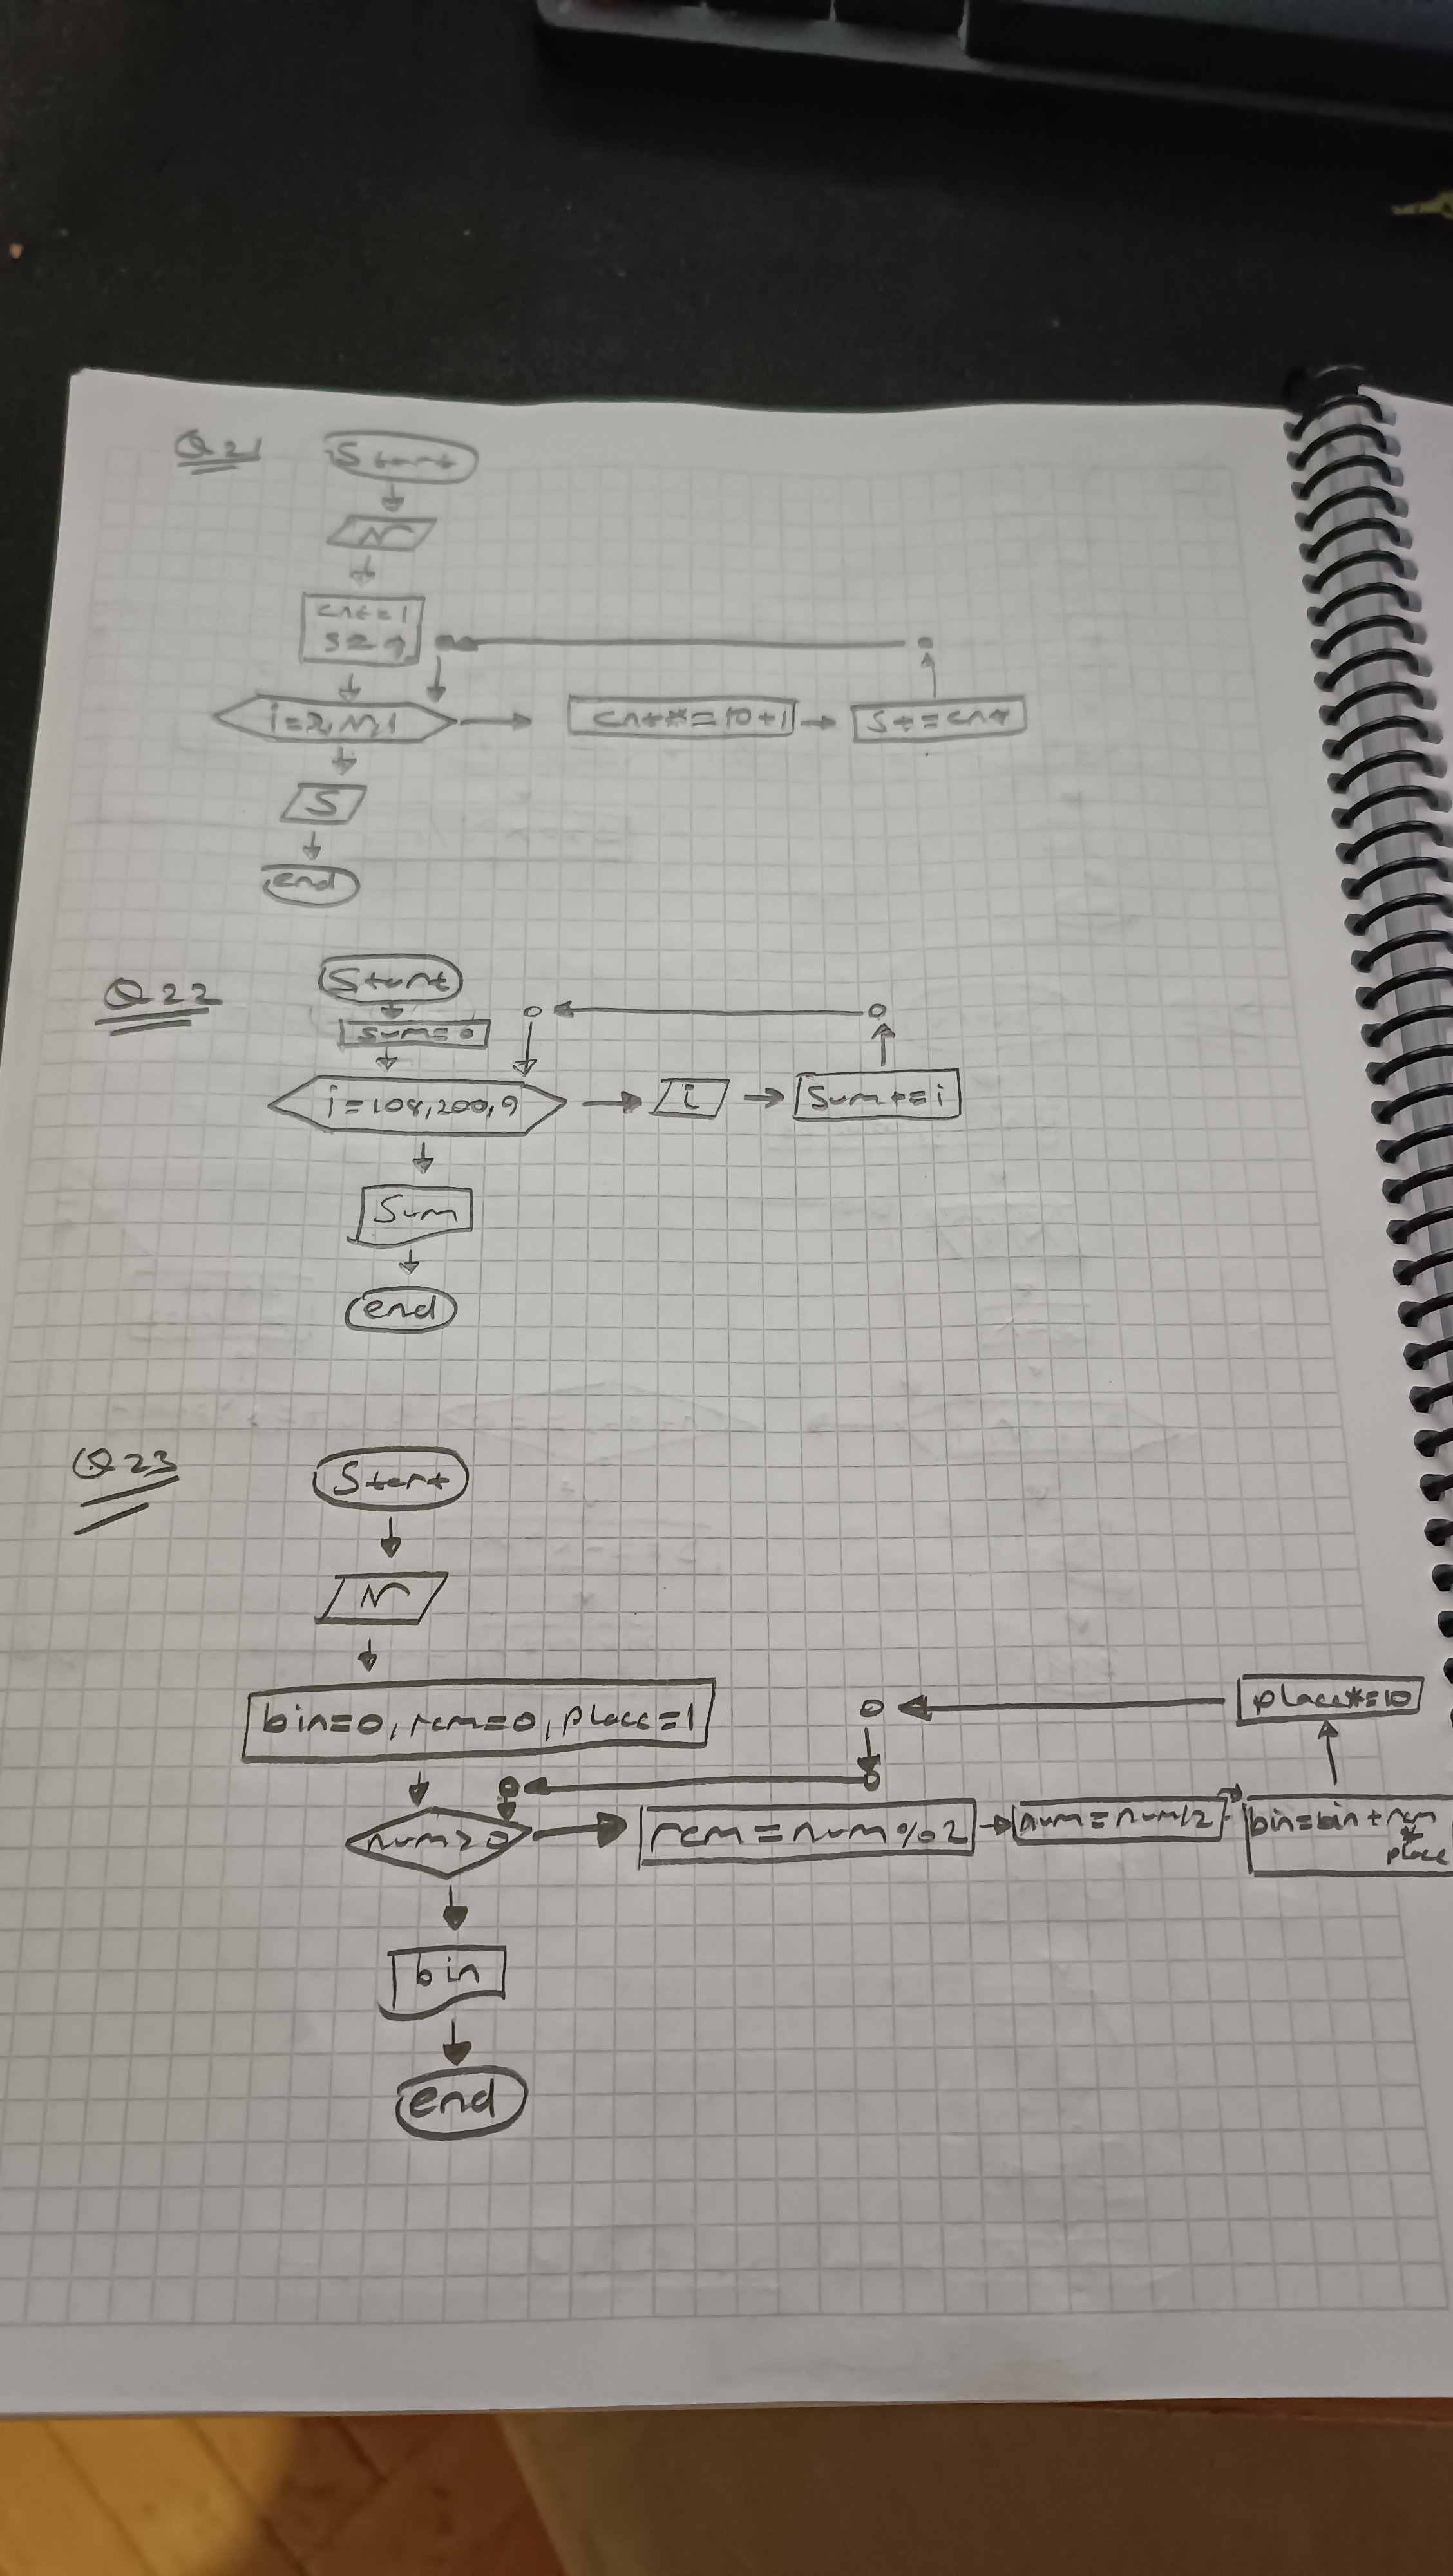 Q21
Start
N
cnt=1
s=1
i=2,N,1
cnt*=10+1
s+=cnt
S
end
Q22
Start
sum=0
i=108,200,9
i
Sum+=i
Sum
end
Q23
Start
N
bin=0, rem=0, place=1
place*=10
num>0
rem=num%2
num=num/2
bin=bin+rem
*
place
bin
end